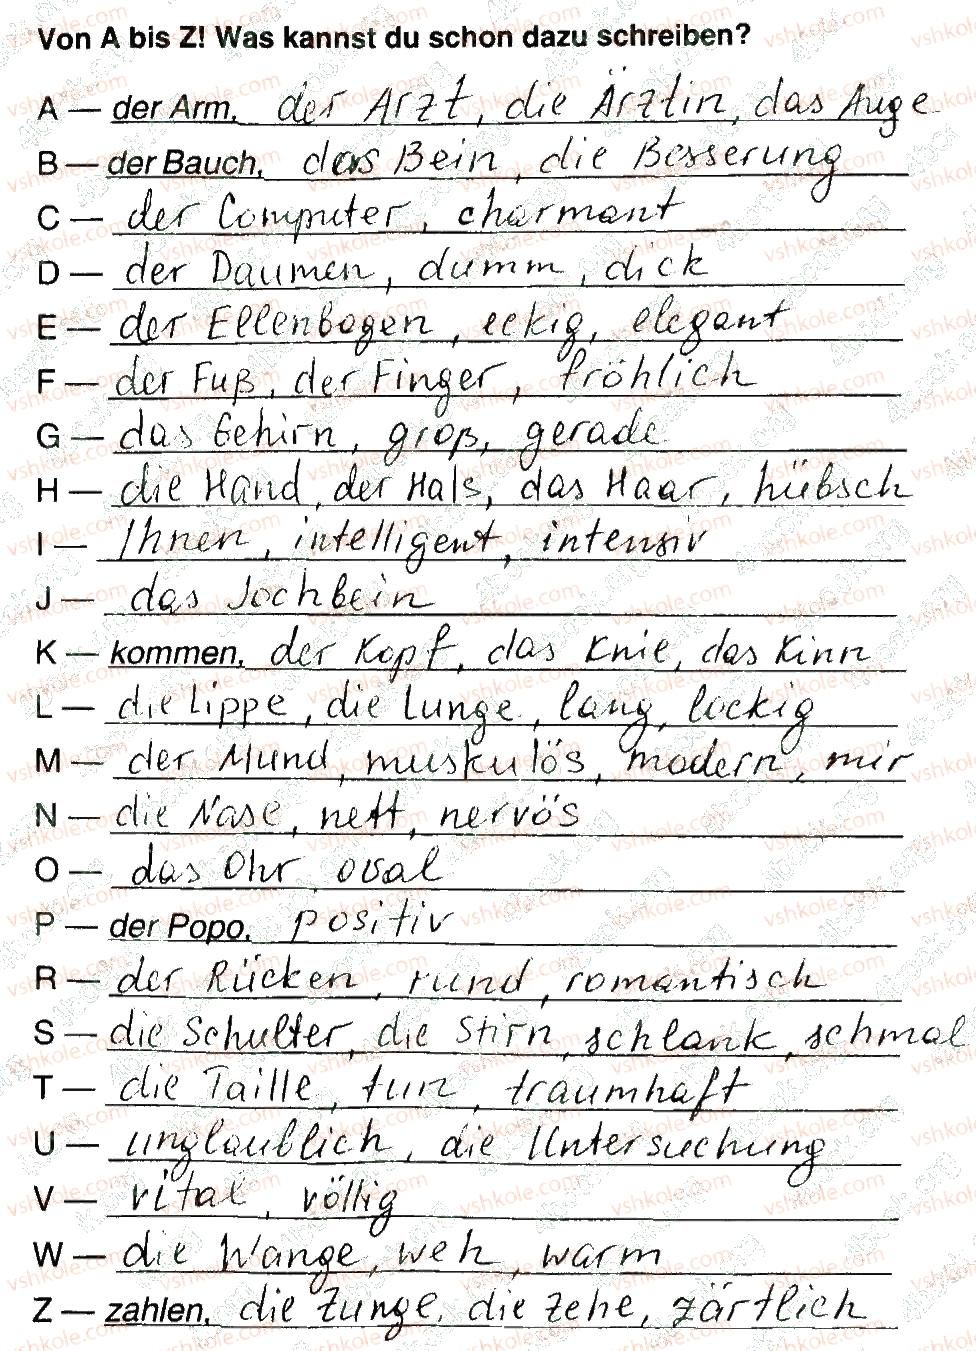 Von A bis Z! Was kannst du schon dazu schreiben?
A — der Arm, der Arzt, die Ärztin, das Auge
B — der Bauch, das Bein, die Besserung
C — der Computer, charmant
D — der Daumen, dumm, dick
E — der Ellenbogen, eckig, elegant
F — der Fuß, der Finger, fröhlich
G — das Gehirn, groß, gerade
H — die Hand, der Hals, das Haar, hübsch
I — Ihnen, intelligent, intensiv
J — das Jochbein
K — kommen, der Kopf, das Knie, das Kinn
L — die Lippe, die Lunge, lang, lockig
M — der Mund, muskulös, modern, mir
N — die Nase, nett, nervös
O — das Ohr, oval
P — der Popo, positiv
R — der Rücken, rund, romantisch
S — die Schulter, die Stirn, schlank, schmal
T — die Taille, tun, traumhaft
U — unglaublich, die Untersuchung
V — vital, völlig
W — die Wange, weh, warm
Z — zahlen, die Zunge, die Zehe, zärtlich